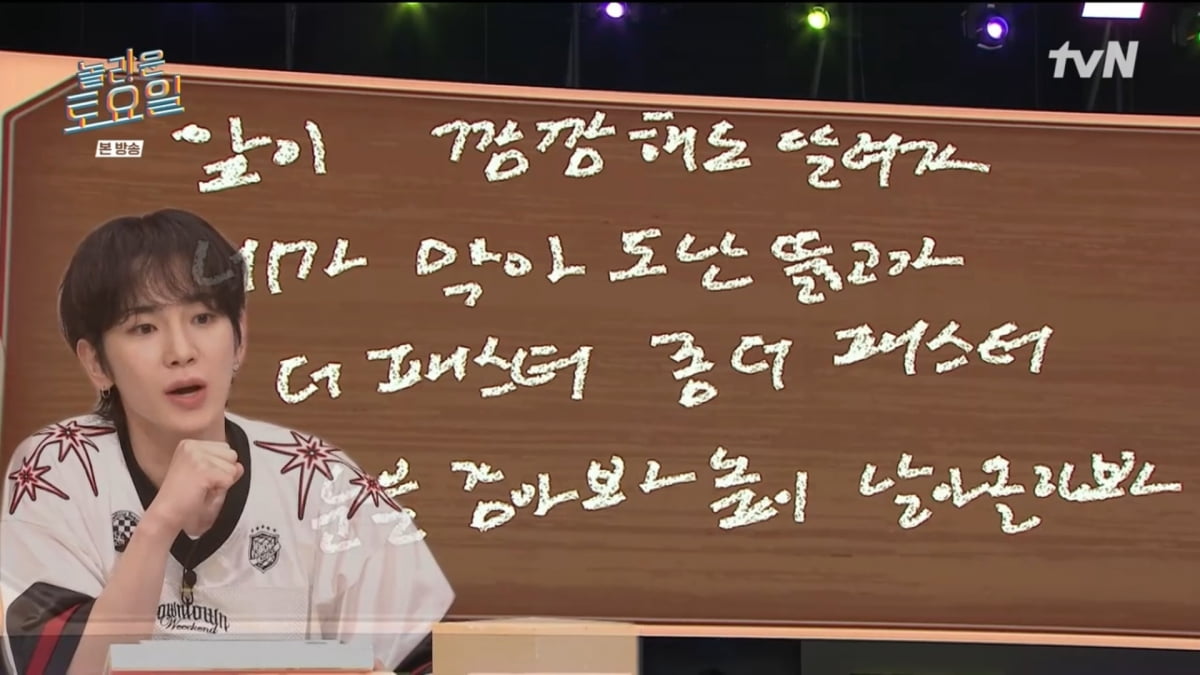 놀라운
토요일
본 방송
tvN
앞이 깜깜해도 달려가
네가 막아도 난 뚫고 가
더 패스터 좀 더 패스터
눈을 감아 보라 높이 날아올라 봐
DOWNTOWN
Weekend